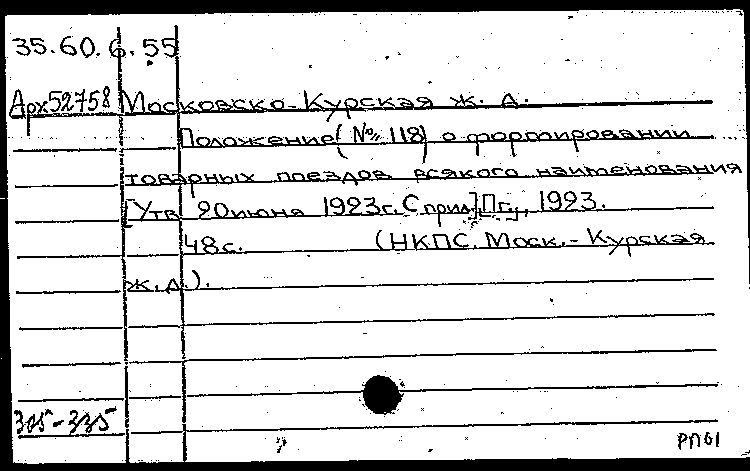 35.60.6.55
Арх52758 Московско-Курская ж. д.
Положение (№ 118) о формировании
товарных поездов всякого наименования
[Утв 20 июня 1923г. С прил.] Пг., 1923.
48 с. (НКПС. Моск.-Курская
ж. д.).
РП61